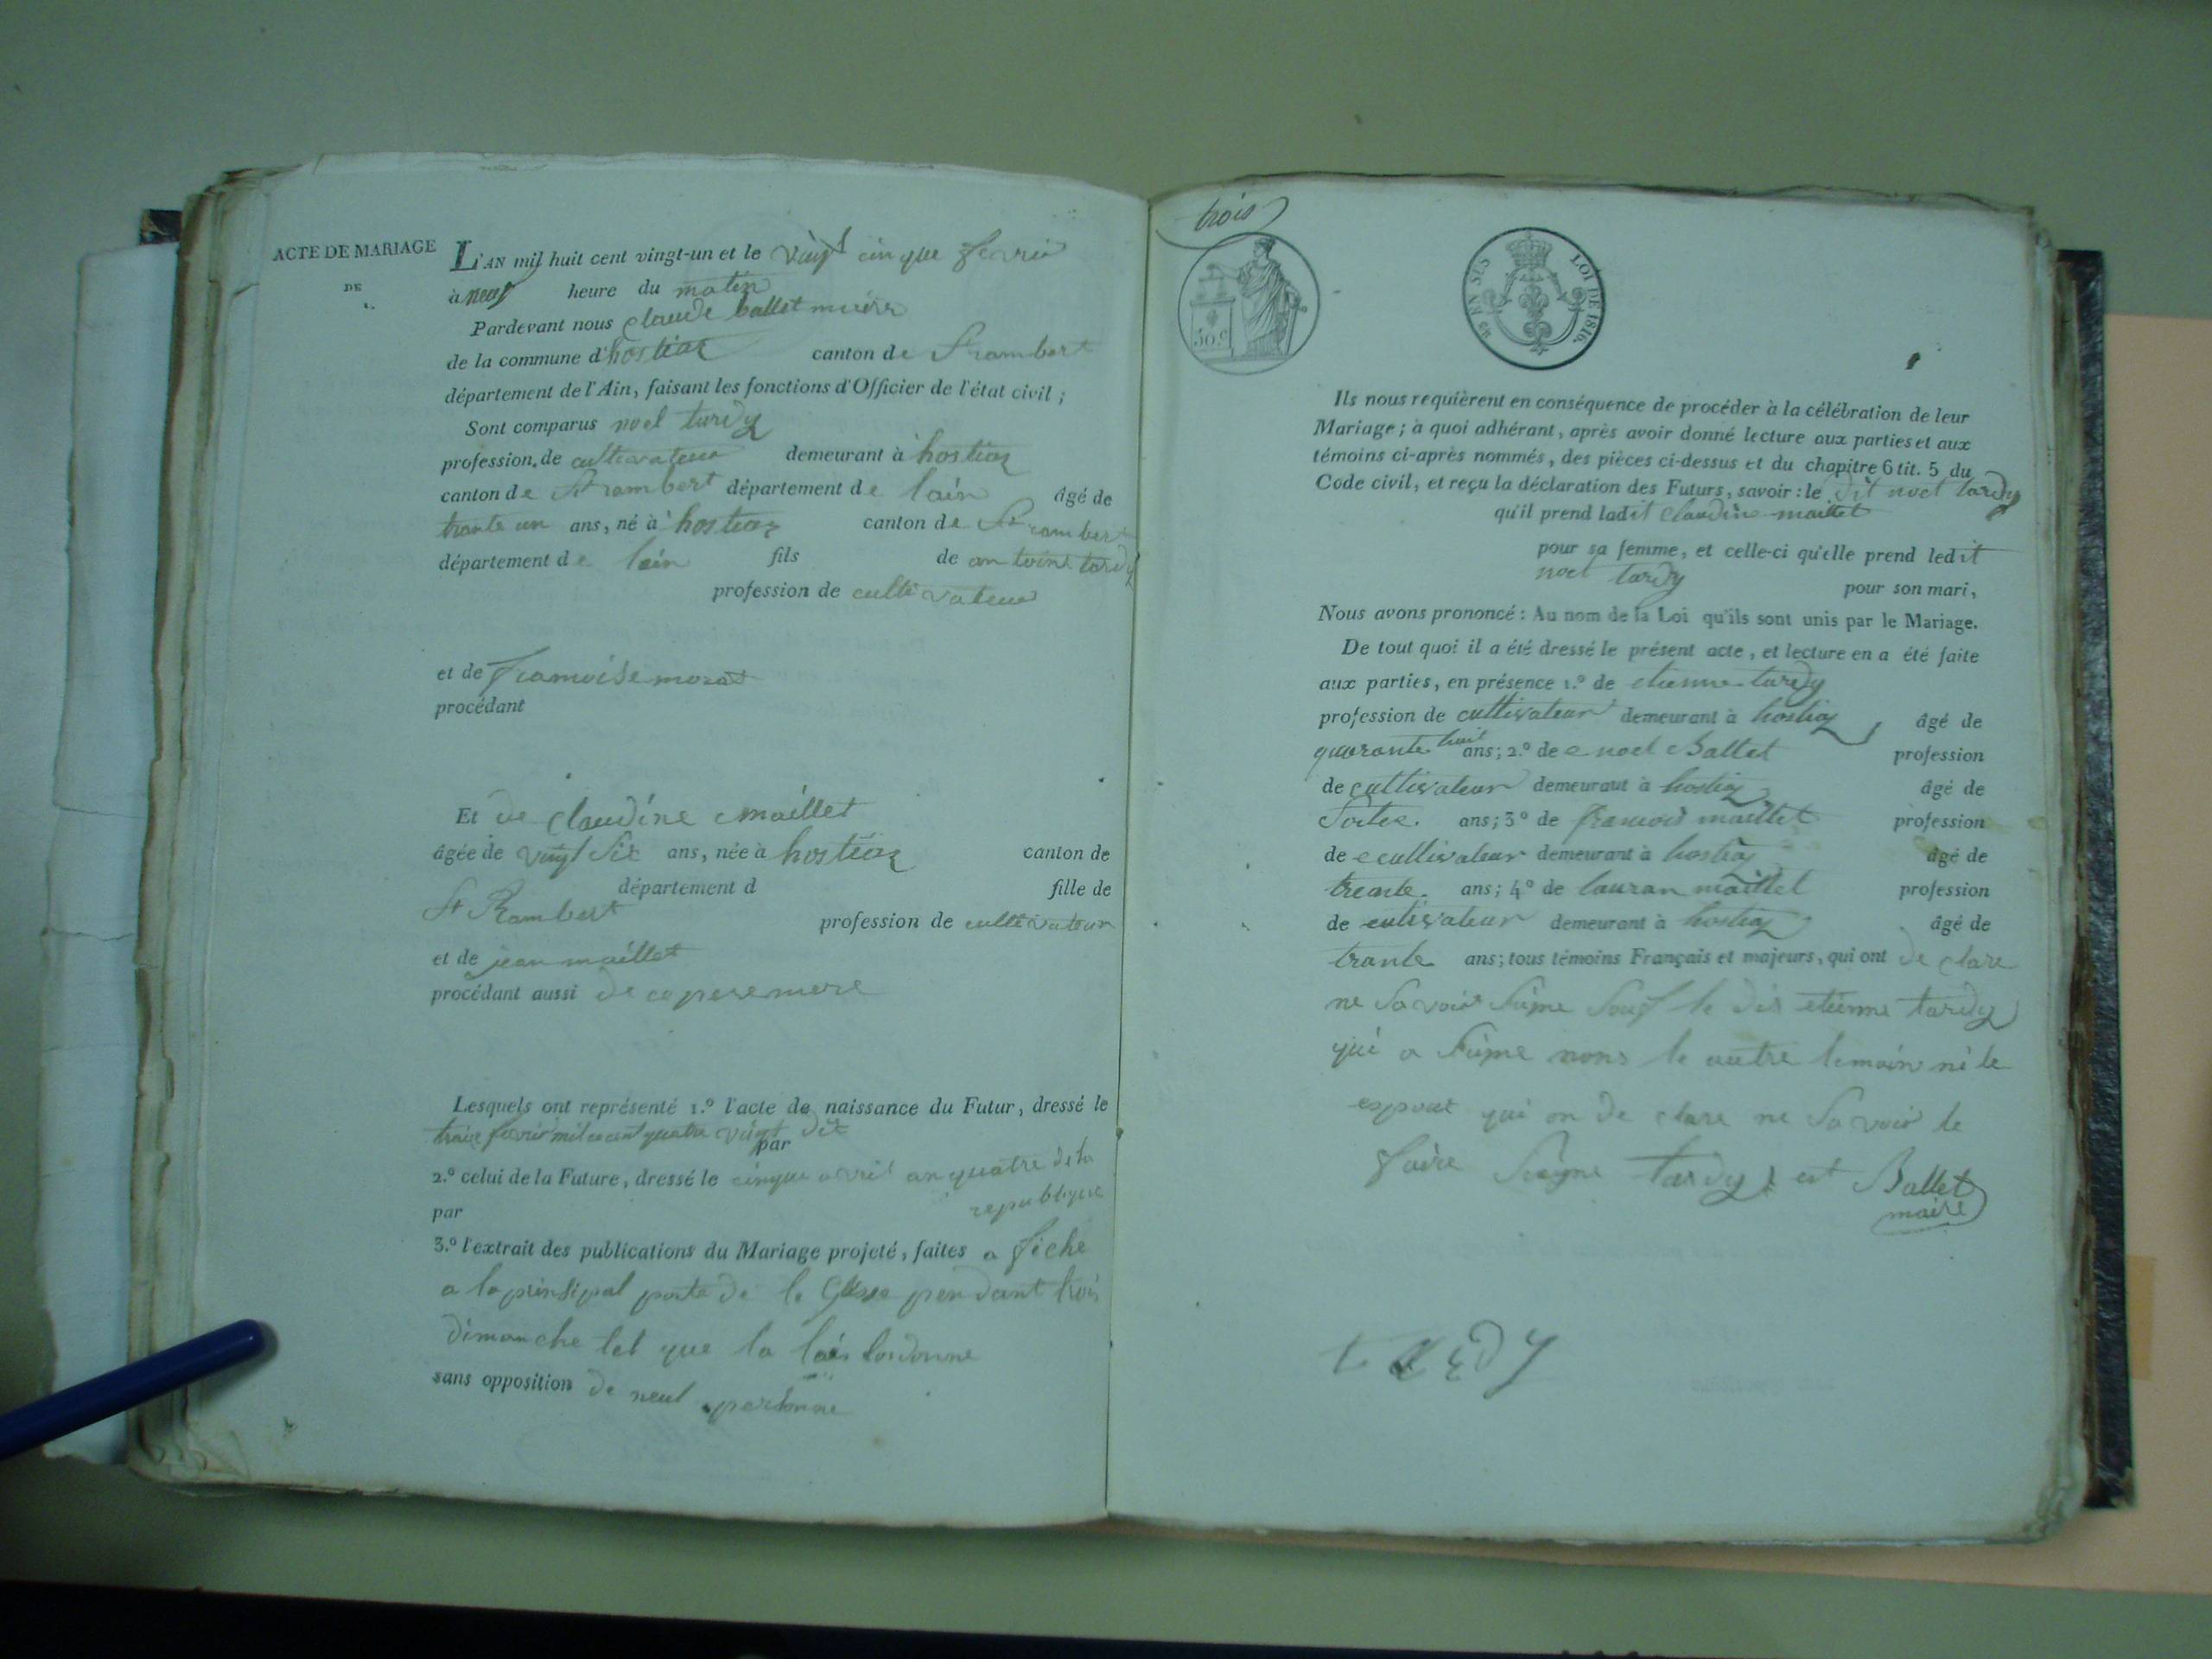 ACTE DE MARIAGE
DE
L'AN mil huit cent vingt-un et le vingt cinque fevrié
à neuf heure du matin
Pardevant nous claude ballet maire
de la commune d'hostiaz canton de St rambert
département de l'Ain, faisant les fonctions d'Officier de l'état civil ;
Sont comparus noel tardy
profession de cultivateur demeurant à hostiaz
canton de St rambert département de lain âgé de
trante un ans, né à hostiaz canton de St rambert
département de lain fils de antoine tardy
profession de cultivateur
et de francoise morat
procédant
Et de claudine maillet
âgée de vingt six ans, née à hostiaz canton de
département d fille de
St Rambert profession de cultivateur
et de jean maillet
procédant aussi de ce pere mere
Lesquels ont représenté 1.º l'acte de naissance du Futur, dressé le
fevrie mil cent quatre vingt dit
par
2.º celui de la Future, dressé le cinque avril an quatre de la
republique
par
3.º l'extrait des publications du Mariage projeté, faites a fiche
a la prinsipal porte de le Glise pendant trois
dimanche tel que la lois lordonne
sans opposition de neul personne
trois
50.c
LOI DE 1816.
Ils nous requièrent en conséquence de procéder à la célébration de leur
Mariage ; à quoi adhérant, après avoir donné lecture aux parties et aux
témoins ci-après nommés, des pièces ci-dessus et du chapitre 6 tit. 5 du
Code civil, et reçu la déclaration des Futurs, savoir : le dit noel tardy
qu'il prend ladit claudine maillet
pour sa femme, et celle-ci qu'elle prend ledit
noel tardy pour son mari,
Nous avons prononcé : Au nom de la Loi qu'ils sont unis par le Mariage.
De tout quoi il a été dressé le présent acte, et lecture en a été faite
aux parties, en présence 1.º de etienne tardy
profession de cultivateur demeurant à hostiaz âgé de
quarante huit ans ; 2.º de noel Ballet profession
de cultivateur demeurant à hostiaz âgé de
ans ; 3º de francois maillet profession
de cultivateur demeurant à hostiaz âgé de
treante ans ; 4º de lauran maillet profession
de cutivateur demeurant à hostiaz âgé de
trante ans ; tous témoins Français et majeurs, qui ont de clare
ne savoir signe souf le dit etienne tardy
qui a signe nons le autre temoin ni le
espout qui on de clare ne savoir le
faire signe tardy et Ballet
maire
tardy